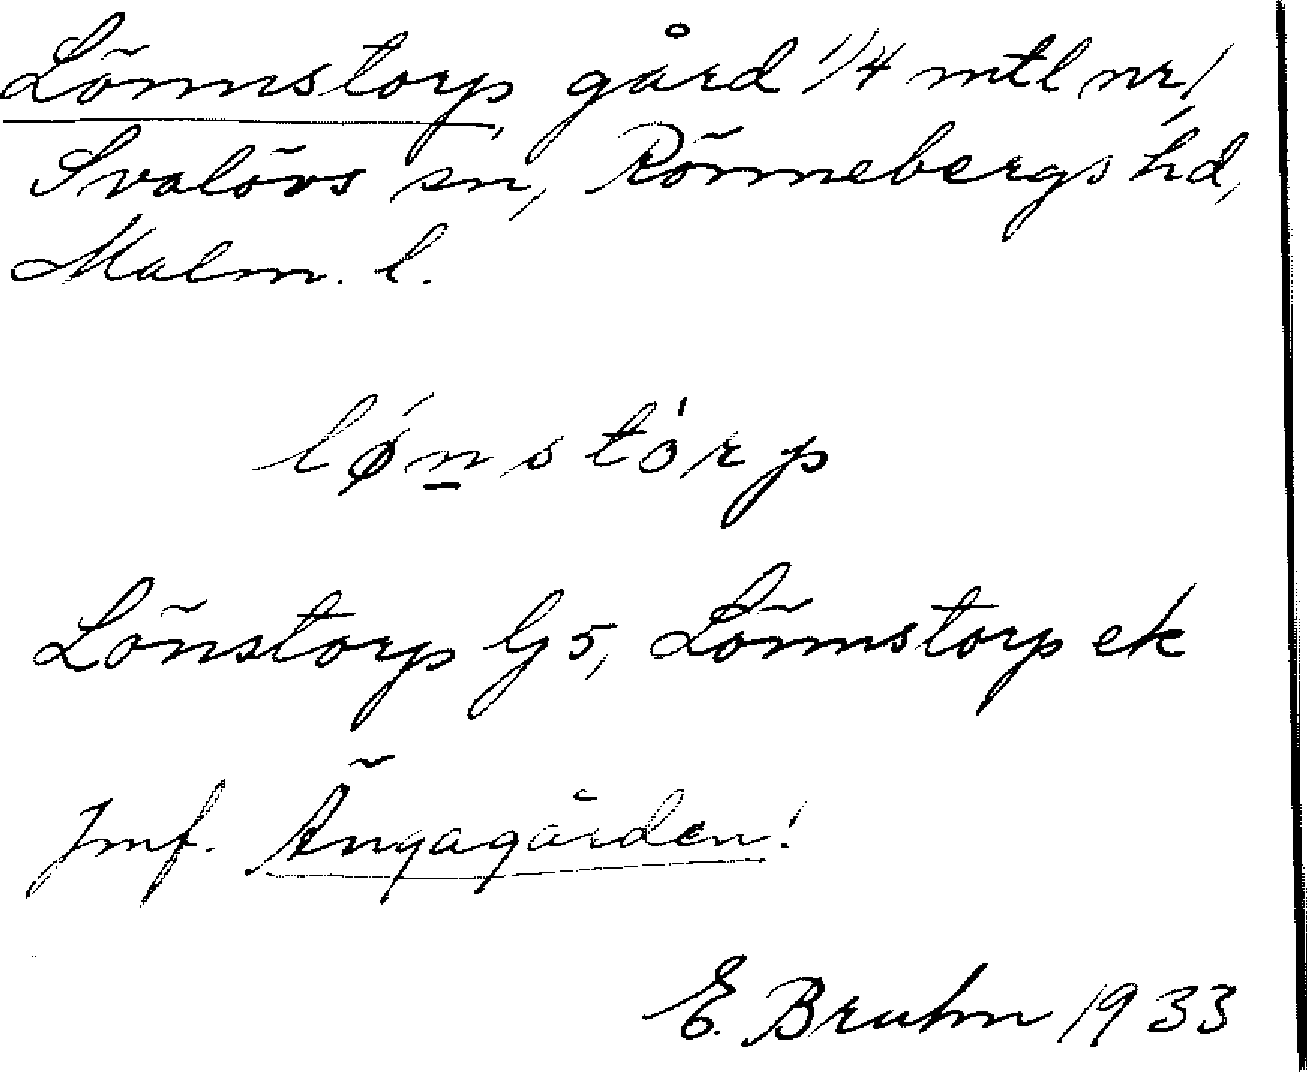 Lönnstorp, gård 1/4 mtl nr 1,
Svalövs sn, Rönnebergs hd,
Malm. l.
lǿn̲stȯrp
Lönstorp Gj 5, Lönnstorp ek
Jmf. Ängagården!
E. Bruhn 1933